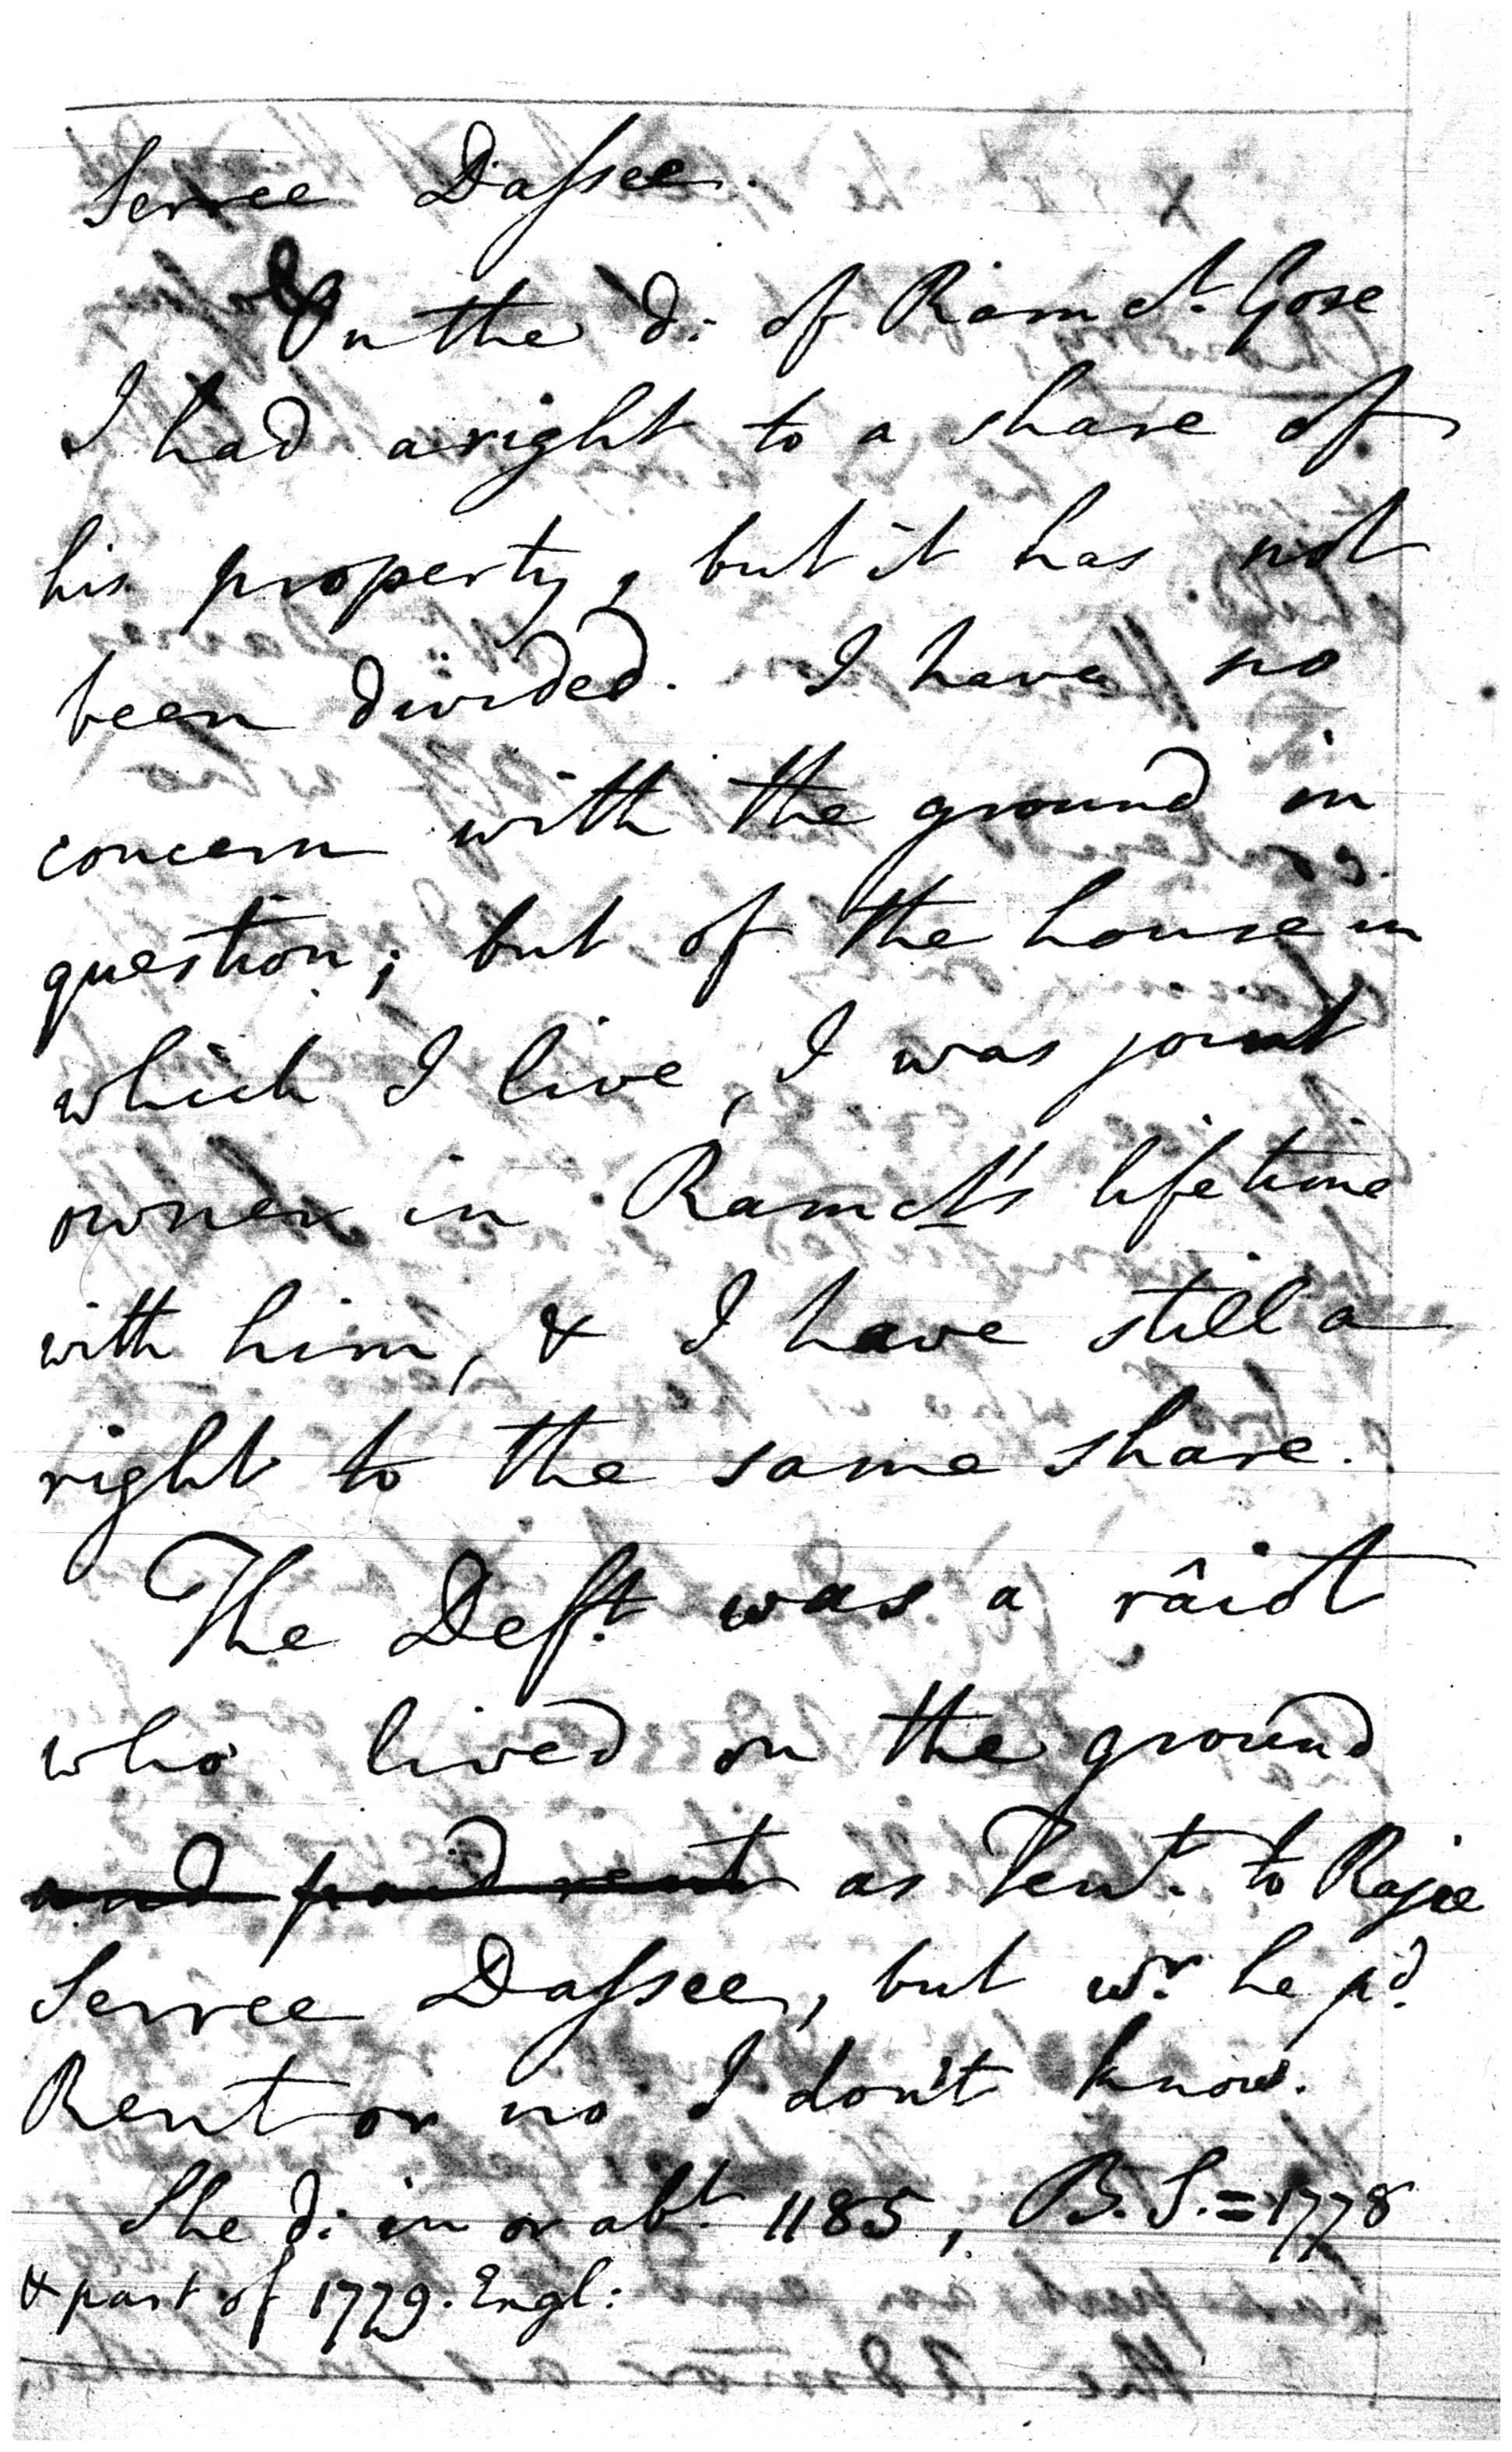 Serree Dassee.
On the d: of Ramct. Gose
I had a right to a share of
his property, but it has not
been divided. I have no
concern with the ground in
question; but of the house in
which I live, I was joint
owner in Ramct's lifetime
with him, & I have still a
right to the same share.
The Deft. was a râiot
who lived on the ground
and paid rent as Tent. to Rajee
Serree Dassee, but wr. he pd.
Rent or no I don't know.
She d: in or abt. 1185, B.S. = 1778
& part of 1779. Engl: